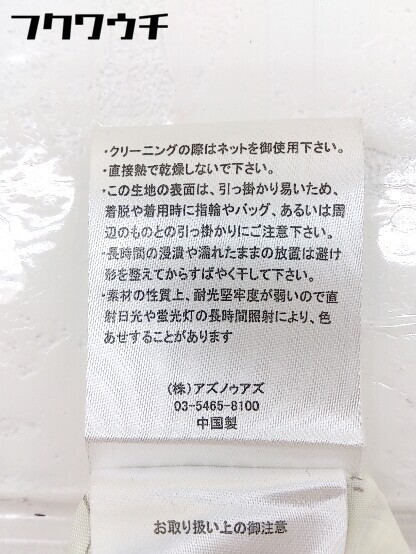 フクワウチ
・クリーニングの際はネットを御使用下さい。
・直接熱で乾燥しないで下さい。
・この生地の表面は、引っ掛かり易いため、
着脱や着用時に指輪やバッグ、あるいは周
辺のものとの引っ掛かりにご注意下さい。
・長時間の浸漬や濡れたままの放置は避け
形を整えてからすばやく干して下さい。
・素材の性質上、耐光堅牢度が弱いので直
射日光や蛍光灯の長時間照射により、色
あせすることがあります
(株)アズノゥアズ
03-5465-8100
中国製
お取り扱い上の御注意